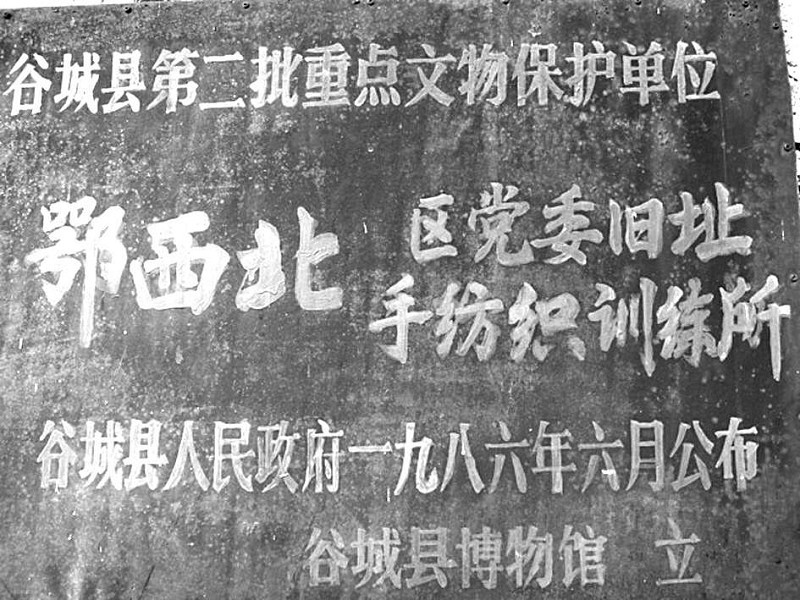 谷城县第二批重点文物保护单位
鄂西北
区党委旧址
手纺织训练所
谷城县人民政府一九八六年六月公布
谷城县博物馆 立